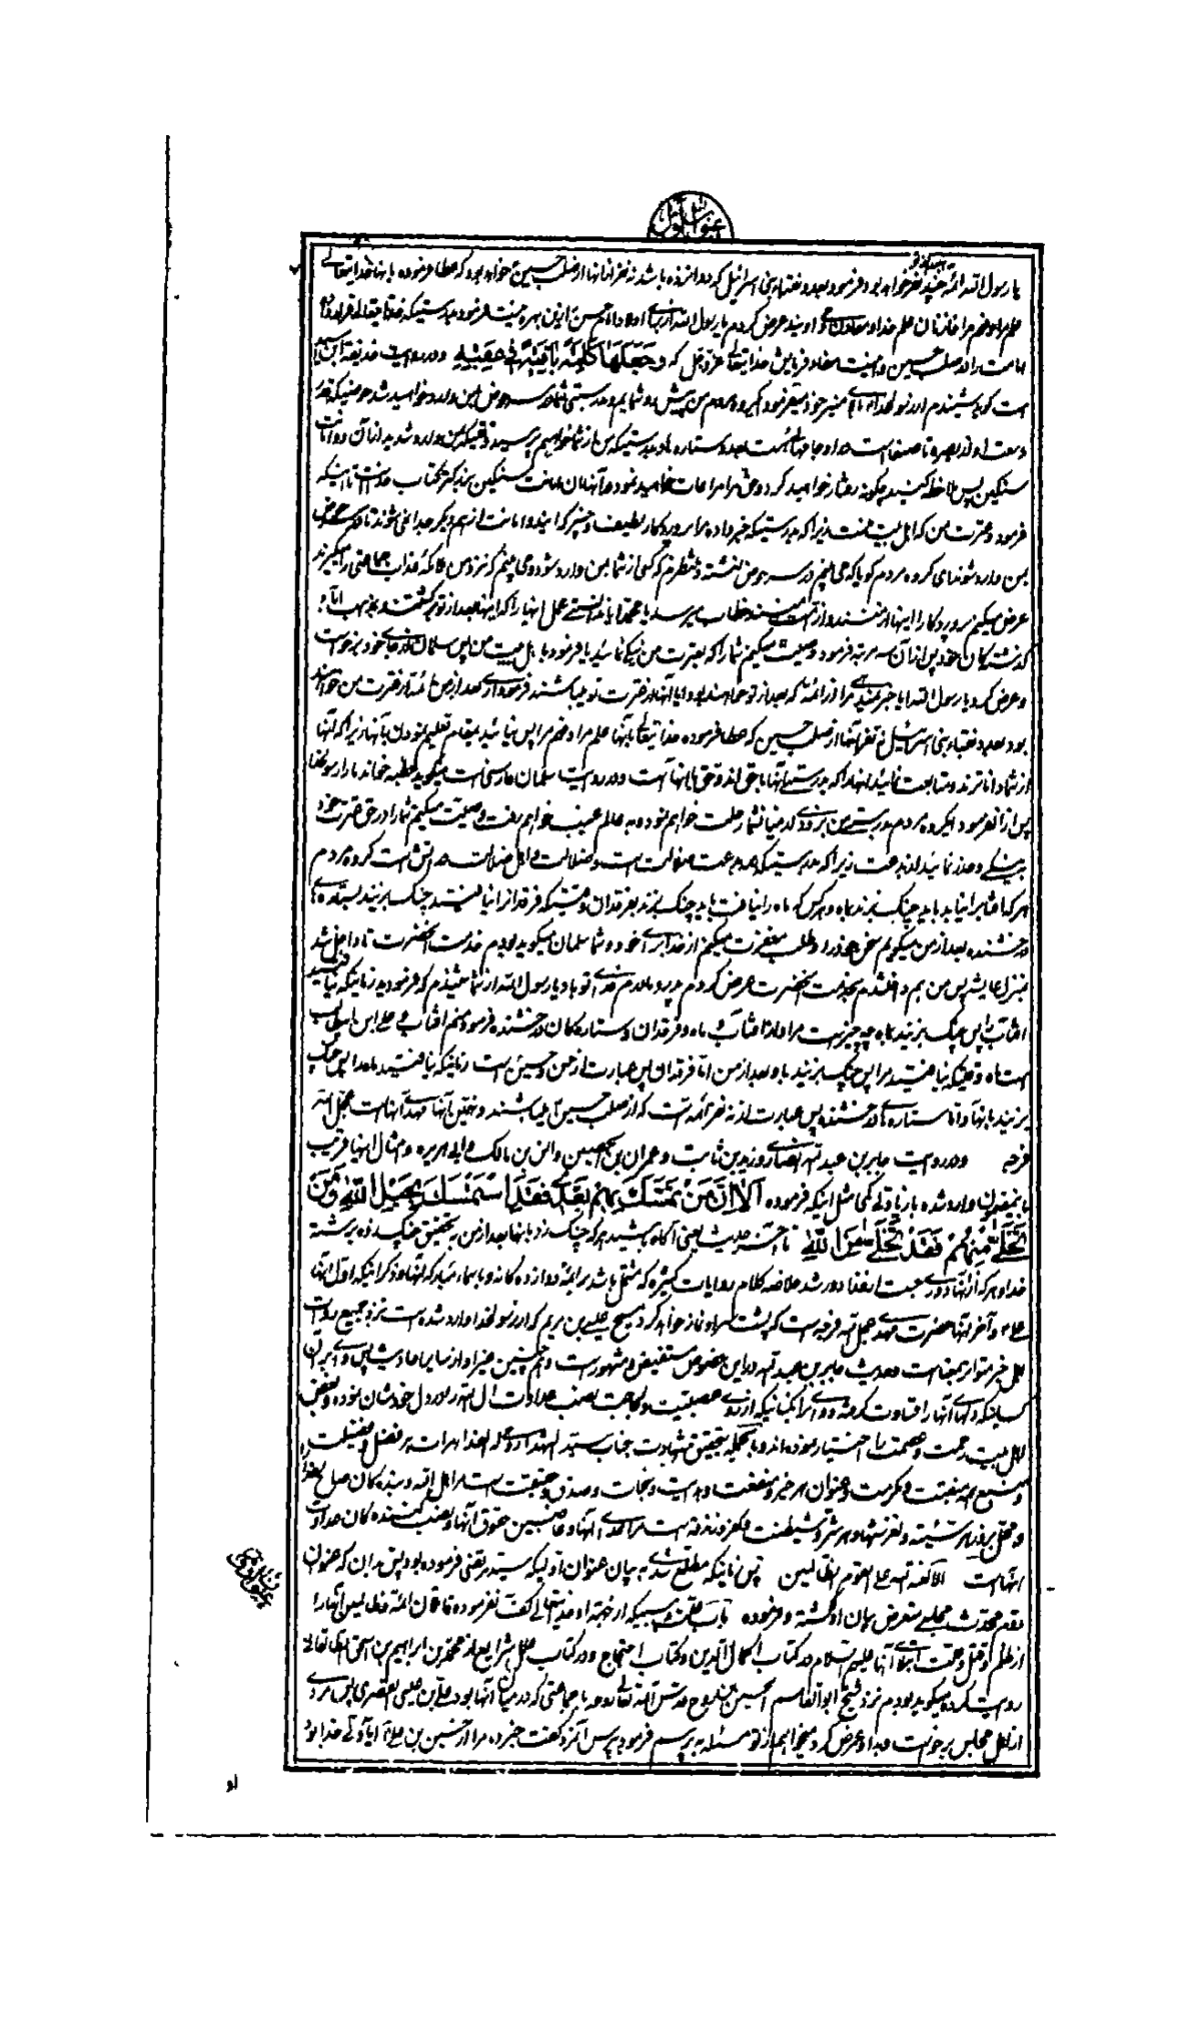 عنوان اول
یا رسول الله ائمه چند نفر خواهد بود فرمود بعدد نقباء بنی اسرائیل که دوازده باشد نه نفر از آنها از صلب حسین خواهد بود که عطا فرموده بآنها خدایتعالی
علم مرا و فهم مرا خازنان علم خدا و معادن وحی اویند عرض کردم یا رسول الله از برای اولاد امام حسن از این بهره نیست فرمود بدرستیکه خدایتعالی قرار داد
امامت را در صلب حسین و اینست مفاد فرمایش خدایتعالی عز و جل که وَجَعَلَهَا كَلِمَةً بَاقِيَةً فِي عَقِبِهِ و در روایت حذیفة ابن اسید
است گوید شنیدم از رسول خدا بر بالای منبر خود میفرمود گروه مردم من پیش رو شمایم و بدرستی شما در سر حوض بمن وارد خواهید شد حوضیکه قدر
وسعت او از بصره تا صنعا است در او جامهائیست بعدد ستاره و بدرستیکه من از شما خواهم پرسید وقتیکه بمن وارد شدید از آن دو امانت
سنگین پس ملاحظه کنید چگونه رفتار خواهید کرد و حق مرا مراعات خواهید نمود در آنها آن امانت سنگین بزرگتر کتاب خداست تا اینکه
فرمود و عترت من که اهل بیت منست زیرا که بدرستیکه خبر داده مرا پروردگار لطیف و خبیر که ایندو امانت از هم دیگر جدا نمی شوند تا در سر حوض
بمن وارد شوند ای گروه مردم گویا که می بینم در سر حوض نشسته و منتظرم که کی از شما بمن وارد شود و می بینم که نزد من ملائکه عذاب جماعتی را میگیرند
عرض میکنم پروردگارا اینها از منند و از امت منند خطاب میرسد یا محمد آیا ندانستی عمل اینها را که اینها بعد از تو برگشتند و بمذهب آباء
گذشتکان خود پس از آن سه مرتبه فرمود وصیت میکنم شما را که بعترت من نیکی نمائید یا فرمود با اهل بیت من پس سلمان از جای خود برخواست
و عرض کرد یا رسول الله آیا خبر نمیدهی مرا از ائمه که بعد از تو خواهند بود آیا آنها از عترت تو میباشند فرمود آری بعد از من ائمه از عترت من خواهند
بود بعدد نقباء بنی اسرائیل نه نفر آنها از صلب حسین که عطا فرموده خدایتعالی بآنها علم مرا و فهم مرا پس نیائید بمقام تعلیم نمودن بآنها زیرا که آنها
از شما داناترند و متابعت نمائید آنها را که بدرستی آنها با حق اند و حق با آنها است و در روایت سلمان فارسی است میگوید خطبه خواند ما را رسول خدا
پس از آن فرمود ای گروه مردم بدرستی من بزودی از میان شما رحلت خواهم نمود و به عالم غیب خواهم رفت وصیت میکنم شما را در حق عترت خود
به نیکی و حذر نمائید از بدعت زیرا که بدرستیکه هر بدعت ضلالت است و ضلالت و اهل ضلالت در آتش است گروه مردم
هر که آفتاب را نیابد باید چنگ بزند بماه و هر کس که ماه را نیافت باید چنگ بزند بفرقدان و وقتیکه فرقدان را نیافتید چنگ بزنید بستاره های
درخشنده بعد از من میگویم سخن خود را و طلب مغفرت میکنم از خدا برای خود و شما سلمان میگوید بودم خدمت آنحضرت تا داخل شد
بمنزل عایشه پس من هم داخل شدم بخدمت آنحضرت عرض کردم پدر و مادرم فدای تو باد یا رسول الله از شما شنیدم که فرمودید زمانیکه نیافتید
آفتاب را پس چنگ بزنید بماه چه چیز است مراد از آفتاب و ماه و فرقدان و ستاره گان درخشنده فرمود منم آفتاب و علی ابن ابیطالب
است ماه وقتیکه نیافتید مرا پس چنگ بزنید باو بعد از من اما فرقدان پس عبارت از حسن و حسین است زمانیکه نیافتید ماه را پس چنگ
بزنید بآنها و اما ستاره های درخشنده پس عبارت از نه نفر ائمه است که از صلب حسین میباشند و نهمین آنها مهدی آنها است عجل الله
فرجه و در روایت جابر بن عبد الله انصاری و زید بن ثابت و عمران بن الحصین و انس بن مالک و ابی هریره و امثال اینها قریب
باینمضمون وارد شده با زیادتی کمی مثل اینکه فرموده اَلا اِنَّ مَنْ تَمَسَّكَ بِهِمْ بَعْدِي فَقَدِ اسْتَمْسَكَ بِحَبْلِ اللّٰهِ وَمَنْ
تَخَلّٰى مِنْهُمْ فَقَدْ تَخَلّٰى مِنَ اللّٰهِ تا آخر حدیث یعنی آگاه باشید هر که چنگ زد بآنها بعد از من به تحقیق چنگ زده برشته
خدا و هر که از آنها دوری جست از خدا دور شد خلاصه کلام روایات کثیره که مشتمل باشد بر ائمه دوازده گانه و باسماء مبارکه آنها و ذکر اینکه اول آنها
علی و آخر آنها حضرت مهدی عجل الله فرجه است که پشت سر او نماز خواهد کرد مسیح عیسی بن مریم که از رسول خدا وارد شده است نزد جمیع روات
اهل خبر متواتر بمعنا است و حدیث جابر بن عبد الله در این خصوص مستفیض و مشهور است و هم چنین غیر او از سایر احادیث پس وای بر آن
کسانیکه دلهای آنها را قساوت گرفته و وای بر آنکسانیکه از روی عصبیت و لجاجت نصب عداوت آل الله را در دل خودشان نموده و بغض
اهل بیت رحمت و عصمت را اختیار نموده اند و بالجمله بتحقیق شهادت جناب سید الشهداء روحی له الفدا هر آت هر فضل و فضیلت
و منبع هر منقبت و مکرمت و عنوان هر خیر و منفعت و هدایت و نجات و صدق و حقیقت است مر اهل الله و بنده گان صلح خدا
و محل بروز هر سیئه و لغزشها و هر شر و شیطنت و کفر و زندقه است مر اعدای آنها و غاصبین حقوق آنها و نصب کننده گان عداوت
آنها است الا لعنة الله علی القوم الظالمین پس زمانیکه مطلع شدی به بیان عنوان اولیکه سید مرتضی فرموده بود پس بدان که عنوان
دوم محدث مجلسی متعرض بیان او گشته و فرموده باب علت و سببیکه از جهة او خدایتعالی کفایت نفرموده قاتلان ائمه و ظالمین آنها را
از ظلم و قتل و علت ابتلای آنها علیهم السلام در کتاب اکمال الدین و کتاب احتجاج و در کتاب علل الشرایع از محمد بن ابراهیم بن اسحق الطالقانی
روایت کرده میگوید بودم نزد شیخ ابوالقاسم الحسین بن روح قدس الله تعالی روحه با جماعتی که در میان آنها بود علی بن عیسی القصری پس مردی
از اهل مجلس برخواست و باو عرض کرد میخواهم از تو مسئله به پرسم فرمود بپرس آنمرد گفت خبر ده مرا از حسین بن علی آیا ولی خدا بود
او